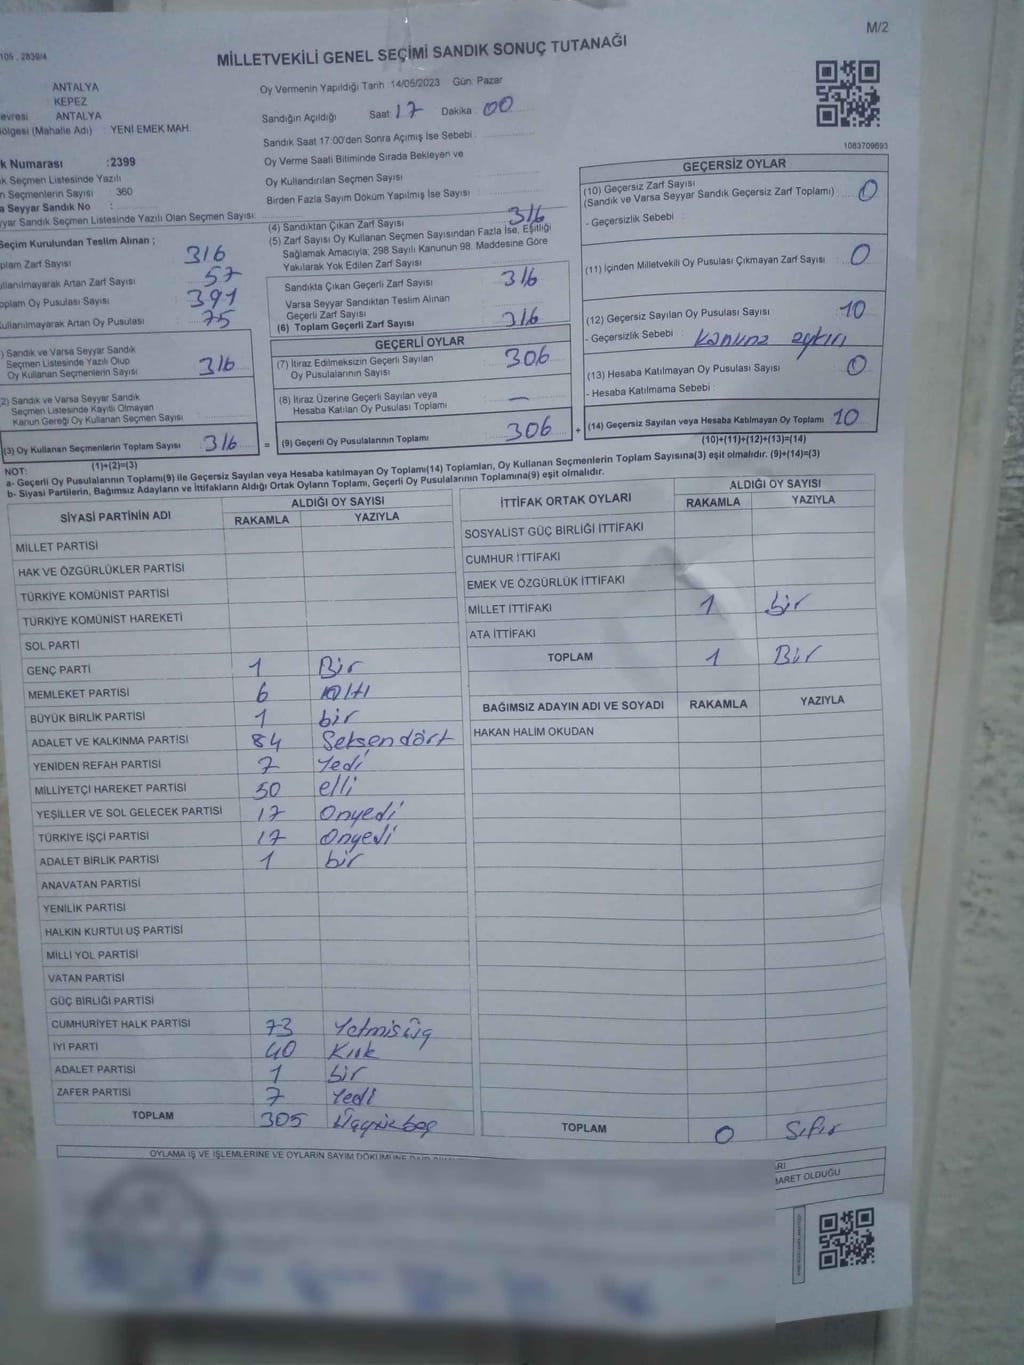 M/2
105 . 2839/4
MİLLETVEKİLİ GENEL SEÇİMİ SANDIK SONUÇ TUTANAĞI
ANTALYA
KEPEZ
evresi ANTALYA
ölgesi (Mahalle Adı) : YENİ EMEK MAH.
k Numarası :2399
k Seçmen Listesinde Yazılı
n Seçmenlerin Sayısı 360
a Seyyar Sandık No :
yyar Sandık Seçmen Listesinde Yazılı Olan Seçmen Sayısı:
Oy Vermenin Yapıldığı Tarih :14/05/2023 Gün: Pazar
Sandığın Açıldığı Saat 17 Dakika 00
Sandık Saat 17:00'den Sonra Açımış İse Sebebi :
Oy Verme Saati Bitiminde Sırada Bekleyen ve
Oy Kullandırılan Seçmen Sayısı
Birden Fazla Sayım Döküm Yapılmış İse Sayısı :
1083709693
Seçim Kurulundan Teslim Alınan ;
plam Zarf Sayısı 316
ullanılmayarak Artan Zarf Sayısı 57
oplam Oy Pusulası Sayısı 391
ullanılmayarak Artan Oy Pusulası 75
) Sandık ve Varsa Seyyar Sandık
Seçmen Listesinde Yazılı Olup
Oy Kullanan Seçmenlerin Sayısı 316
2) Sandık ve Varsa Seyyar Sandık
Seçmen Listesinde Kayıtlı Olmayan
Kanun Gereği Oy Kullanan Seçmen Sayısı
(3) Oy Kullanan Seçmenlerin Toplam Sayısı 316 =
(1)+(2)=(3)
(4) Sandıktan Çıkan Zarf Sayısı 316
(5) Zarf Sayısı Oy Kullanan Seçmen Sayısından Fazla İse, Eşitliği
Sağlamak Amacıyla; 298 Sayılı Kanunun 98. Maddesine Göre
Yakılarak Yok Edilen Zarf Sayısı
Sandıkta Çıkan Geçerli Zarf Sayısı 316
Varsa Seyyar Sandıktan Teslim Alınan
Geçerli Zarf Sayısı
(6) Toplam Geçerli Zarf Sayısı 316
GEÇERLİ OYLAR
(7) İtiraz Edilmeksizin Geçerli Sayılan
Oy Pusulalarının Sayısı 306
(8) İtiraz Üzerine Geçerli Sayılan veya
Hesaba Katılan Oy Pusulası Toplamı —
(9) Geçerli Oy Pusulalarının Toplamı 306 +
GEÇERSİZ OYLAR
(10) Geçersiz Zarf Sayısı
(Sandık ve Varsa Seyyar Sandık Geçersiz Zarf Toplamı) : 0
- Geçersizlik Sebebi :
(11) İçinden Milletvekili Oy Pusulası Çıkmayan Zarf Sayısı 0
(12) Geçersiz Sayılan Oy Pusulası Sayısı 10
- Geçersizlik Sebebi : Kanuna aykırı
(13) Hesaba Katılmayan Oy Pusulası Sayısı 0
- Hesaba Katılmama Sebebi :
(14) Geçersiz Sayılan veya Hesaba Katılmayan Oy Toplamı 10
(10)+(11)+(12)+(13)=(14)
NOT:
a- Geçerli Oy Pusulalarının Toplamı(9) ile Geçersiz Sayılan veya Hesaba katılmayan Oy Toplamı(14) Toplamları, Oy Kullanan Seçmenlerin Toplam Sayısına(3) eşit olmalıdır. (9)+(14)=(3)
b- Siyasi Partilerin, Bağımsız Adayların ve İttifakların Aldığı Ortak Oyların Toplamı, Geçerli Oy Pusulalarının Toplamına(9) eşit olmalıdır.
SİYASİ PARTİNİN ADI ALDIĞI OY SAYISI
RAKAMLA YAZIYLA
MİLLET PARTİSİ
HAK VE ÖZGÜRLÜKLER PARTİSİ
TÜRKİYE KOMÜNİST PARTİSİ
TÜRKİYE KOMÜNİST HAREKETİ
SOL PARTİ
GENÇ PARTİ 1 Bir
MEMLEKET PARTİSİ 6 Altı
BÜYÜK BİRLİK PARTİSİ 1 bir
ADALET VE KALKINMA PARTİSİ 84 Seksendört
YENİDEN REFAH PARTİSİ 7 Yedi
MİLLİYETÇİ HAREKET PARTİSİ 50 elli
YEŞİLLER VE SOL GELECEK PARTİSİ 17 Onyedi
TÜRKİYE İŞÇİ PARTİSİ 17 Onyedi
ADALET BİRLİK PARTİSİ 1 bir
ANAVATAN PARTİSİ
YENİLİK PARTİSİ
HALKIN KURTULUŞ PARTİSİ
MİLLİ YOL PARTİSİ
VATAN PARTİSİ
GÜÇ BİRLİĞİ PARTİSİ
CUMHURİYET HALK PARTİSİ 73 Yetmisüç
İYİ PARTİ 40 Kırk
ADALET PARTİSİ 1 bir
ZAFER PARTİSİ 7 Yedi
TOPLAM 305 Üçyüzbeş
İTTİFAK ORTAK OYLARI ALDIĞI OY SAYISI
RAKAMLA YAZIYLA
SOSYALİST GÜÇ BİRLİĞİ İTTİFAKI
CUMHUR İTTİFAKI
EMEK VE ÖZGÜRLÜK İTTİFAKI
MİLLET İTTİFAKI 1 bir
ATA İTTİFAKI
TOPLAM 1 Bir
BAĞIMSIZ ADAYIN ADI VE SOYADI RAKAMLA YAZIYLA
HAKAN HALİM OKUDAN
TOPLAM 0 Sıfır
OYLAMA İŞ VE İŞLEMLERİNE VE OYLARIN SAYIM DÖKÜMÜNE
ARI
BARET OLDUĞU